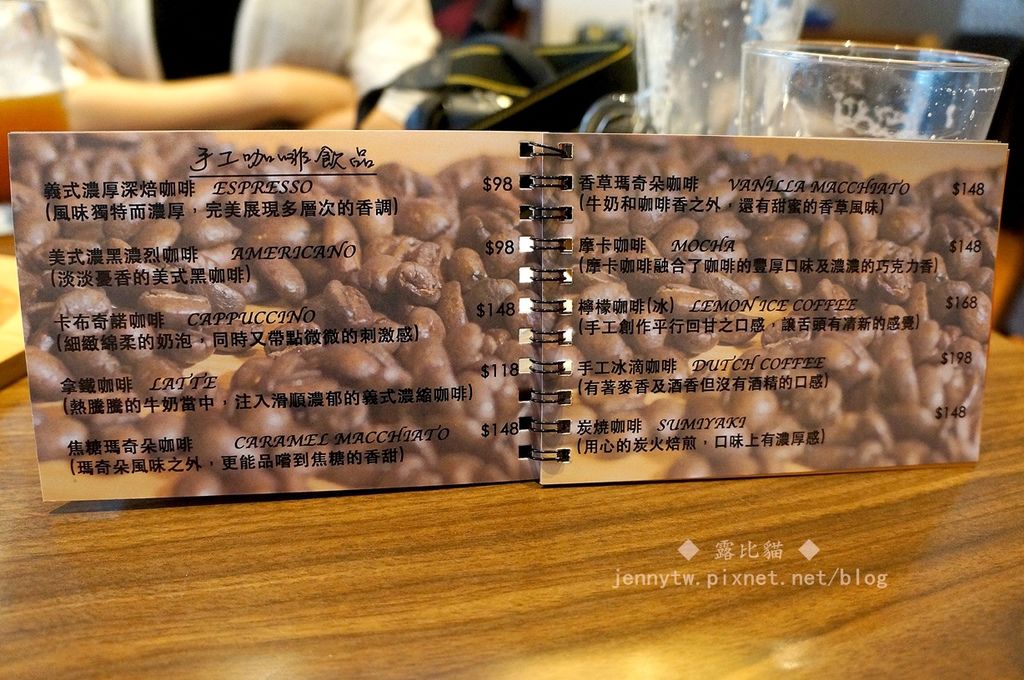 手工咖啡飲品
義式濃厚深焙咖啡 ESPRESSO $98
(風味獨特而濃厚，完美展現多層次的香調)
美式濃黑濃烈咖啡 AMERICANO $98
(淡淡憂香的美式黑咖啡)
卡布奇諾咖啡 CAPPUCCINO $148
(細緻綿柔的奶泡，同時又帶點微微的刺激感)
拿鐵咖啡 LATTE $118
(熱騰騰的牛奶當中，注入滑順濃郁的義式濃縮咖啡)
焦糖瑪奇朵咖啡 CARAMEL MACCHIATO $148
(瑪奇朵風味之外，更能品嚐到焦糖的香甜)
香草瑪奇朵咖啡 VANILLA MACCHIATO $148
(牛奶和咖啡香之外，還有甜蜜的香草風味)
摩卡咖啡 MOCHA $148
(摩卡咖啡融合了咖啡的豐厚口味及濃濃的巧克力香)
檸檬咖啡(冰) LEMON ICE COFFEE $168
(手工創作平行回甘之口感，讓舌頭有清新的感覺)
手工冰滴咖啡 DUTCH COFFEE $198
(有著麥香及酒香但沒有酒精的口感)
炭燒咖啡 SUMIYAKI $148
(用心的炭火焙煎，口味上有濃厚感)
◆ 露比貓 ◆
jennytw.pixnet.net/blog